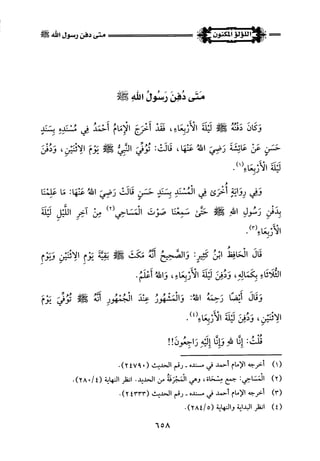 اللؤلؤ المكنون
متى دفن رسول الله ﷺ
مَتَى دُفِنَ رَسُولُ اللهِ ﷺ
وَكَانَ دَفْنُهُ ﷺ لَيْلَةَ الْأَرْبِعَاءِ، فَقَدْ أَخْرَجَ الْإِمَامُ أَحْمَدُ فِي مُسْنَدِهِ بِسَنَدٍ
حَسَنٍ عَنْ عَائِشَةَ رَضِيَ اللهُ عَنْهَا، قَالَتْ: تُوُفِّيَ النَّبِيُّ ﷺ يَوْمَ الِاثْنَيْنِ، وَدُفِنَ
لَيْلَةَ الْأَرْبِعَاءِ(١).
وَفِي رِوَايَةٍ أُخْرَى فِي الْمُسْنَدِ بِسَنَدٍ حَسَنٍ قَالَتْ رَضِيَ اللهُ عَنْهَا: مَا عَلِمْنَا
بِدَفْنِ رَسُولِ اللهِ ﷺ حَتَّى سَمِعْنَا صَوْتَ الْمَسَاحِي(٢) مِنْ آخِرِ اللَّيْلِ لَيْلَةَ
الْأَرْبِعَاءِ(٣).
قَالَ الْحَافِظُ ابْنُ كَثِيرٍ: وَالصَّحِيحُ أَنَّهُ مَكَثَ ﷺ بَقِيَّةَ يَوْمِ الِاثْنَيْنِ وَيَوْمَ
الثُّلَاثَاءِ بِكَمَالِهِ، وَدُفِنَ لَيْلَةَ الْأَرْبِعَاءِ، وَاللهُ أَعْلَمُ.
وَقَالَ أَيْضًا رَحِمَهُ اللهُ: وَالْمَشْهُورُ عِنْدَ الْجُمْهُورِ أَنَّهُ ﷺ تُوُفِّيَ يَوْمَ
الِاثْنَيْنِ، وَدُفِنَ لَيْلَةَ الْأَرْبِعَاءِ(٤).
قُلْتُ: إِنَّا لِلهِ وَإِنَّا إِلَيْهِ رَاجِعُونَ!!
(١) أخرجه الإمام أحمد في مسنده ـ رقم الحديث (٢٤٧٩٠).
(٢) الْمَسَاحِي: جمع مِسْحَاة، وهي الْمَجْرَفَةُ من الحديد. انظر النهاية (٢٨٠/٤).
(٣) أخرجه الإمام أحمد في مسنده ـ رقم الحديث (٢٤٣٣٣).
(٤) انظر البداية والنهاية (٢٨٤/٥).
٦٥٨